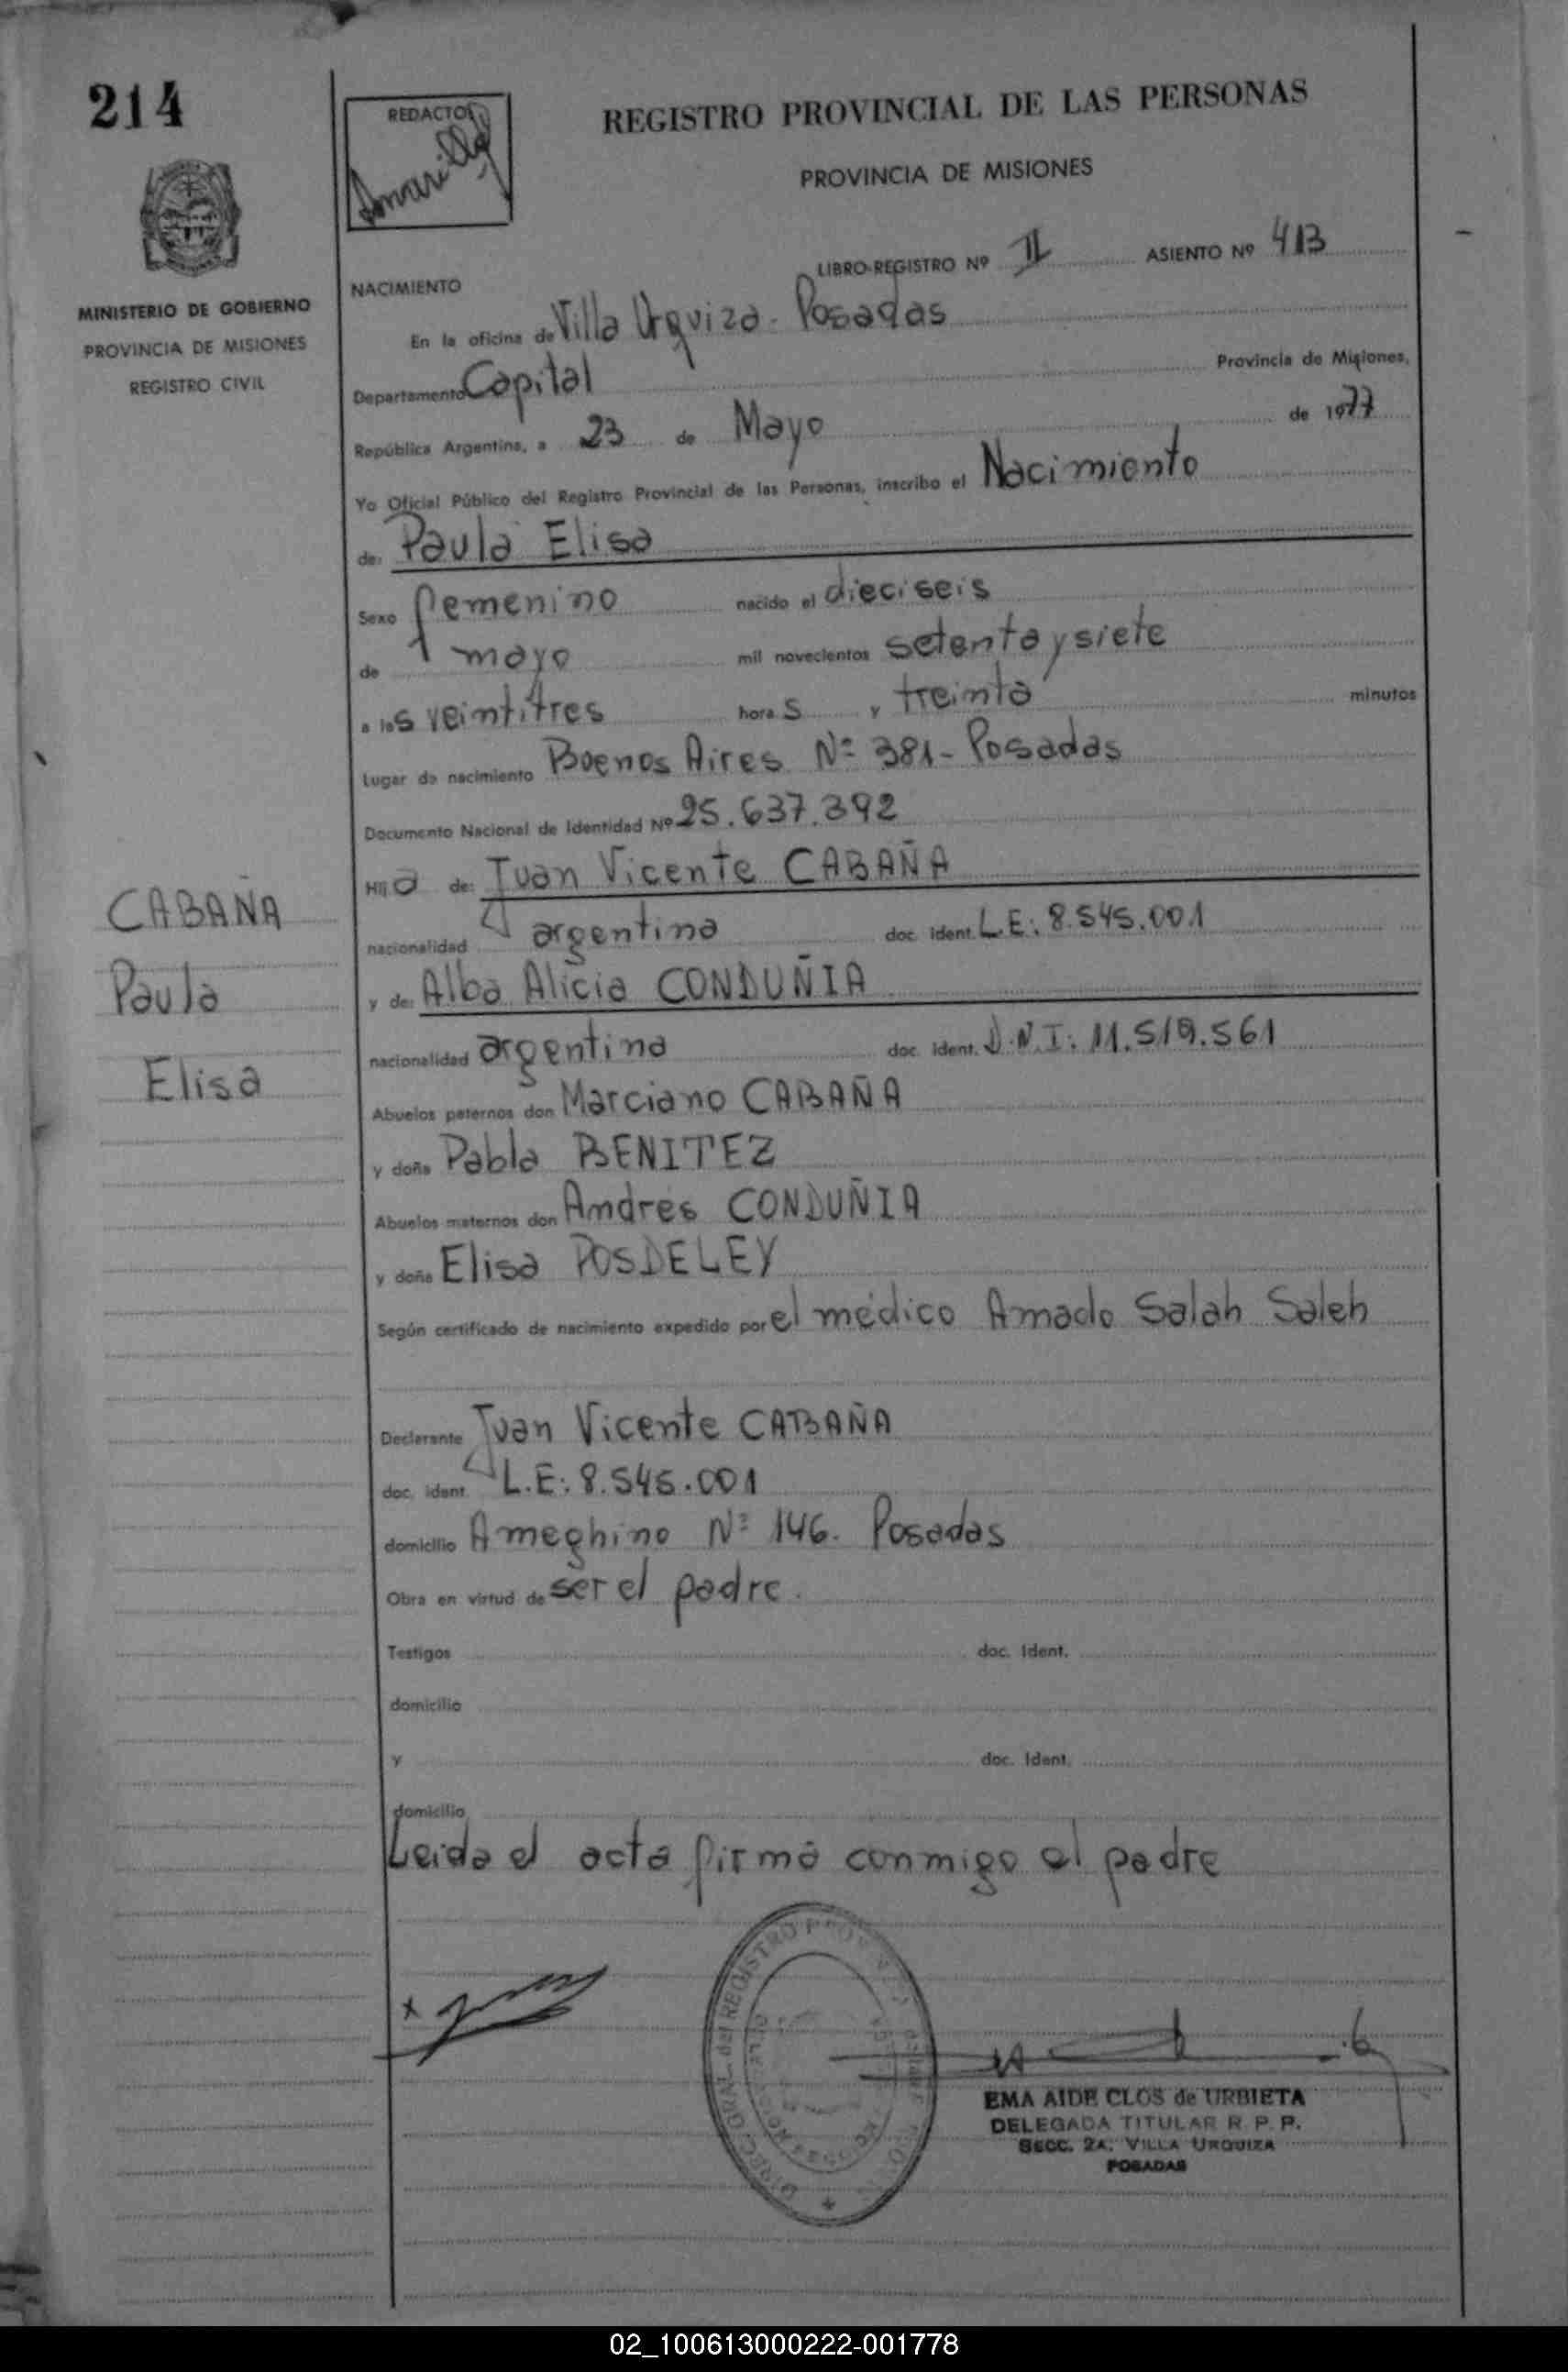 214
REDACTOR
Amarilla
REGISTRO PROVINCIAL DE LAS PERSONAS
PROVINCIA DE MISIONES
MINISTERIO DE GOBIERNO
PROVINCIA DE MISIONES
REGISTRO CIVIL
LIBRO-REGISTRO Nº II ASIENTO Nº 413
NACIMIENTO
En la oficina de Villa Urquiza - Posadas
Departamento Capital Provincia de Misiones,
República Argentina, a 23 de Mayo de 1977
Yo Oficial Público del Registro Provincial de las Personas, inscribo el Nacimiento
de: Paula Elisa
Sexo femenino nacido el dieciseis
de mayo mil novecientos setenta y siete
a las veintitres horas y treinta minutos
Lugar de nacimiento Buenos Aires Nº 381 - Posadas
Documento Nacional de Identidad Nº 25.637.392
Hija de: Juan Vicente CABAÑA
nacionalidad argentina doc. ident. L.E: 8.545.001
y de: Alba Alicia CONDUÑIA
nacionalidad argentina doc. ident. D.N.I: 11.519.561
Abuelos paternos don Marciano CABAÑA
y doña Pabla BENITEZ
Abuelos maternos don Andres CONDUÑIA
y doña Elisa POSDELEY
Según certificado de nacimiento expedido por el médico Amado Salah Saleh
Declarante Juan Vicente CABAÑA
doc. ident. L.E: 8.545.001
domicilio Ameghino Nº 146. Posadas
Obra en virtud de ser el padre.
Testigos doc. Ident.
domicilio
y doc. Ident.
domicilio
Leida el acta firma conmigo el padre
CABAÑA
Paula
Elisa
x
DIREC. GRAL. del REGISTRO PROV.
EMA AIDE CLOS de URBIETA
DELEGADA TITULAR R. P. P.
SECC. 2A. VILLA URQUIZA
POSADAS
02_100613000222-001778